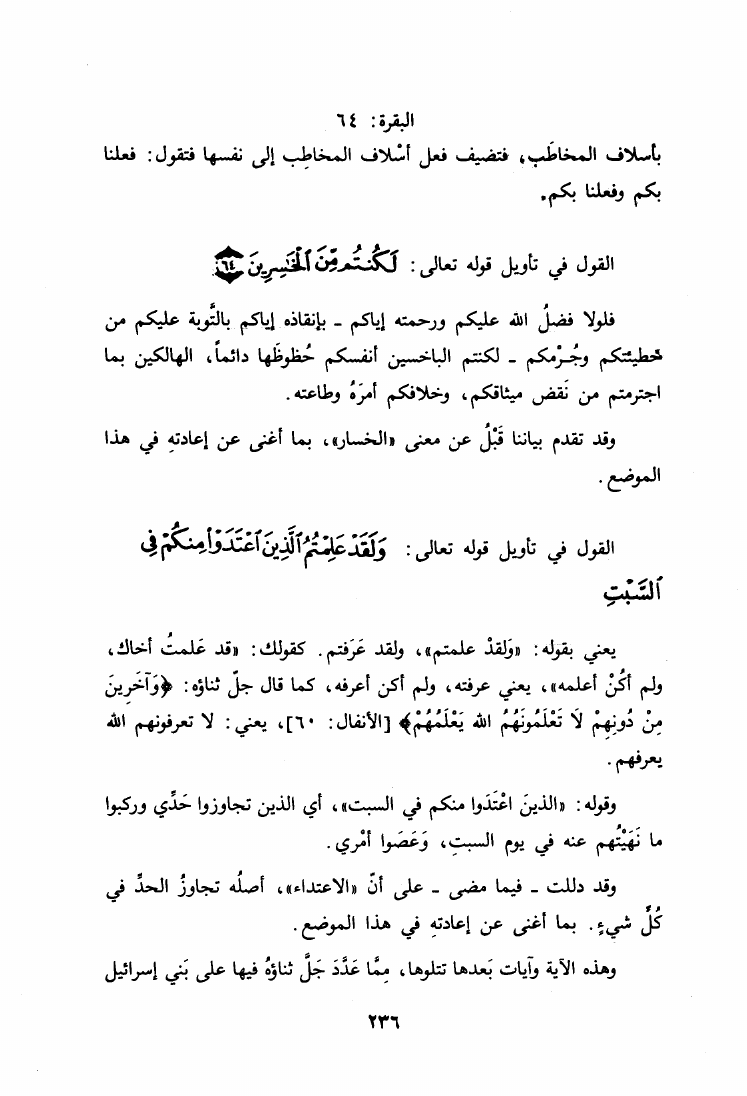 البقرة: ٦٤
بأسلاف المخاطَب، فتضيف فعل أسْلاف المخاطِب إلى نفسها فتقول: فعلنا
بكم وفعلنا بكم.
القول في تأويل قوله تعالى: لَكُنتُم مِّنَ ٱلْخَٰسِرِينَ ٦٤
فلولا فضلُ الله عليكم ورحمته إياكم ـ بإنقاذه إياكم بالتَّوبة عليكم من
خطيئتكم وجُرْمكم ـ لكنتم الباخسين أنفسكم حُظوظَها دائماً، الهالكين بما
اجترمتم من نَقض ميثاقكم، وخلافكم أمرَهُ وطاعته.
وقد تقدم بياننا قَبْلُ عن معنى «الخسار»، بما أغنى عن إعادتهِ في هذا
الموضع.
القول في تأويل قوله تعالى: وَلَقَدْ عَلِمْتُمُ ٱلَّذِينَ ٱعْتَدَوْاْ مِنكُمْ فِى
ٱلسَّبْتِ
يعني بقوله: «وَلقدْ علمتم»، ولقد عَرَفتم. كقولك: «قد عَلمتُ أخاك،
ولم أكُنْ أعلمه»، يعني عرفته، ولم أكن أعرفه، كما قال جلّ ثناؤه: ﴿وَآخَرِينَ
مِنْ دُونِهِمْ لَا تَعْلَمُونَهُمُ الله يَعْلَمُهُمْ﴾ [الأنفال: ٦٠]، يعني: لا تعرفونهم الله
يعرفهم.
وقوله: «الذينَ اعْتَدَوا منكم في السبت»، أي الذين تجاوزوا حَدِّي وركبوا
ما نَهَيْتُهم عنه في يوم السبتِ، وَعَصَوا أمْري.
وقد دللت ـ فيما مضى ـ على أنّ «الاعتداء»، أصلُه تجاوزُ الحدِّ في
كُلِّ شيءٍ. بما أغنى عن إعادتهِ في هذا الموضع.
وهذه الآية وآيات بَعدها تتلوها، مِمَّا عَدَّدَ جَلَّ ثناؤهُ فيها على بَني إسرائيل
٢٣٦